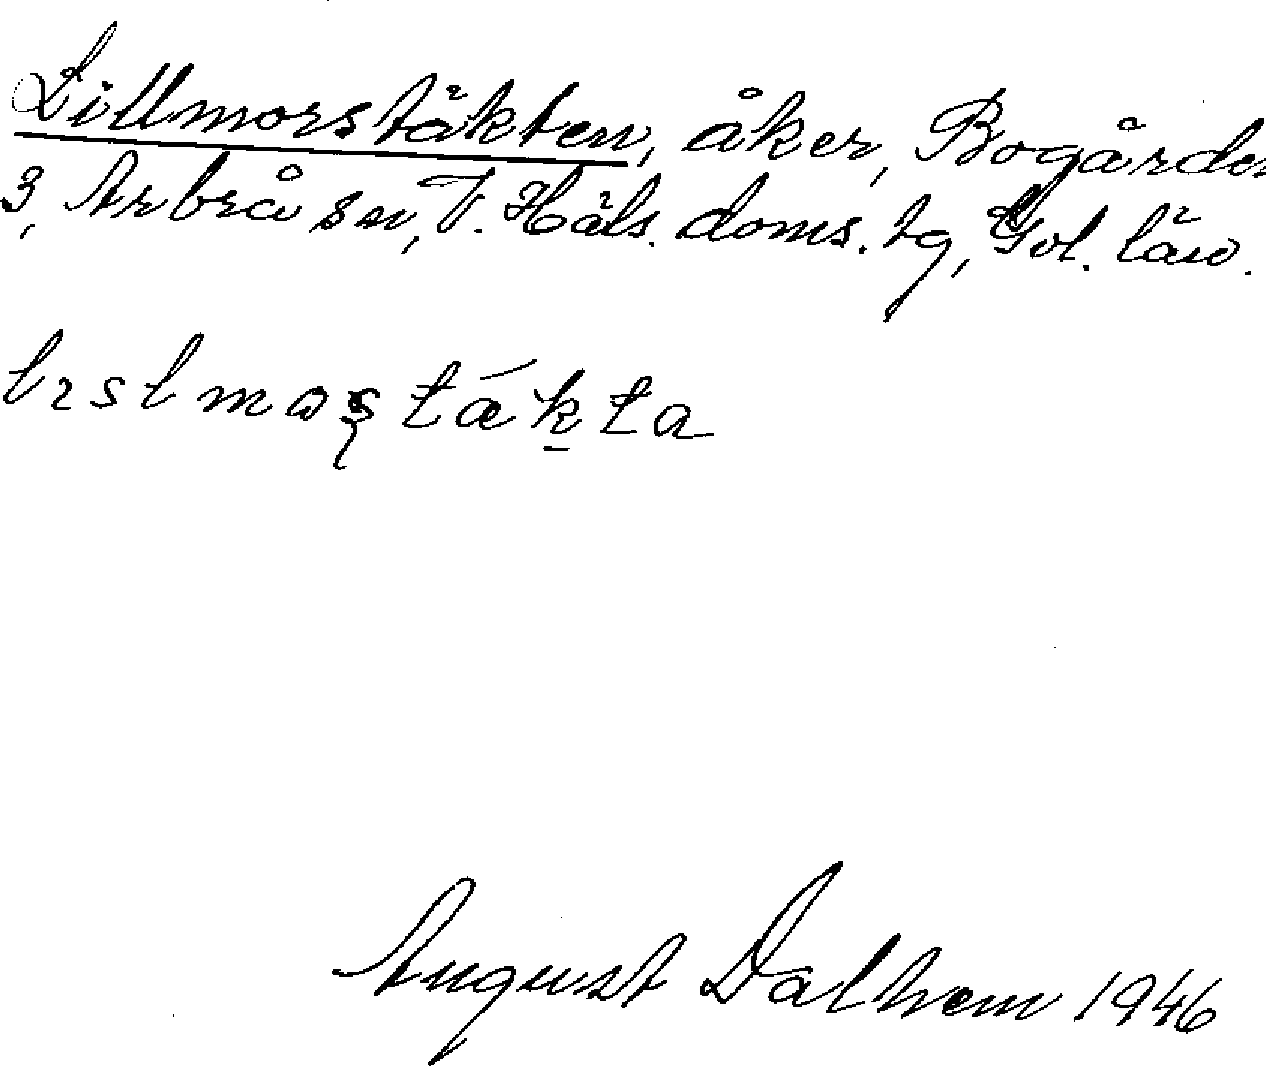 Lillmorstäkten, åker, Bogården
3, Arbrå sn, V. Häls. doms. tg, Gvl. län.
August Dalhem 1946